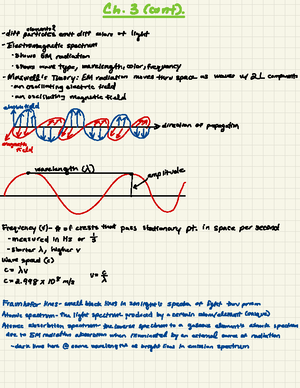 Ch. 3 (cont).
elements?
-diff particles emit diff colors of light
-Electromagnetic spectrum
-shows EM radiation
-shows wave type, wavelength, color, frequency
-Maxwell's Theory: EM radiation moves thru space as waves w/ 2⊥ components
-an oscillating electric field
-an oscillating magnetic field
electric field
direction of propagation
magnetic field
wavelength (λ)
amplitude
Frequency (ν)- # of crests that pass stationary pt. in space per second
-measured in Hz or 1/s
-shorter λ, higher ν
Wave speed (c)
c = λν
ν = c/λ
c = 2.998 x 10⁸ m/s
Fraunhofer lines- small black lines in sunlight's spectra of light thru prism
Atomic spectrum- The light spectrum produced by a certain atom/element
Atomic absorption spectrum- the inverse spectrum to a gaseous element's atomic spectrum
due to EM radiation absorption when by an external source of radiation
-dark lines here @ same wavelengths as bright lines in emission spectrum